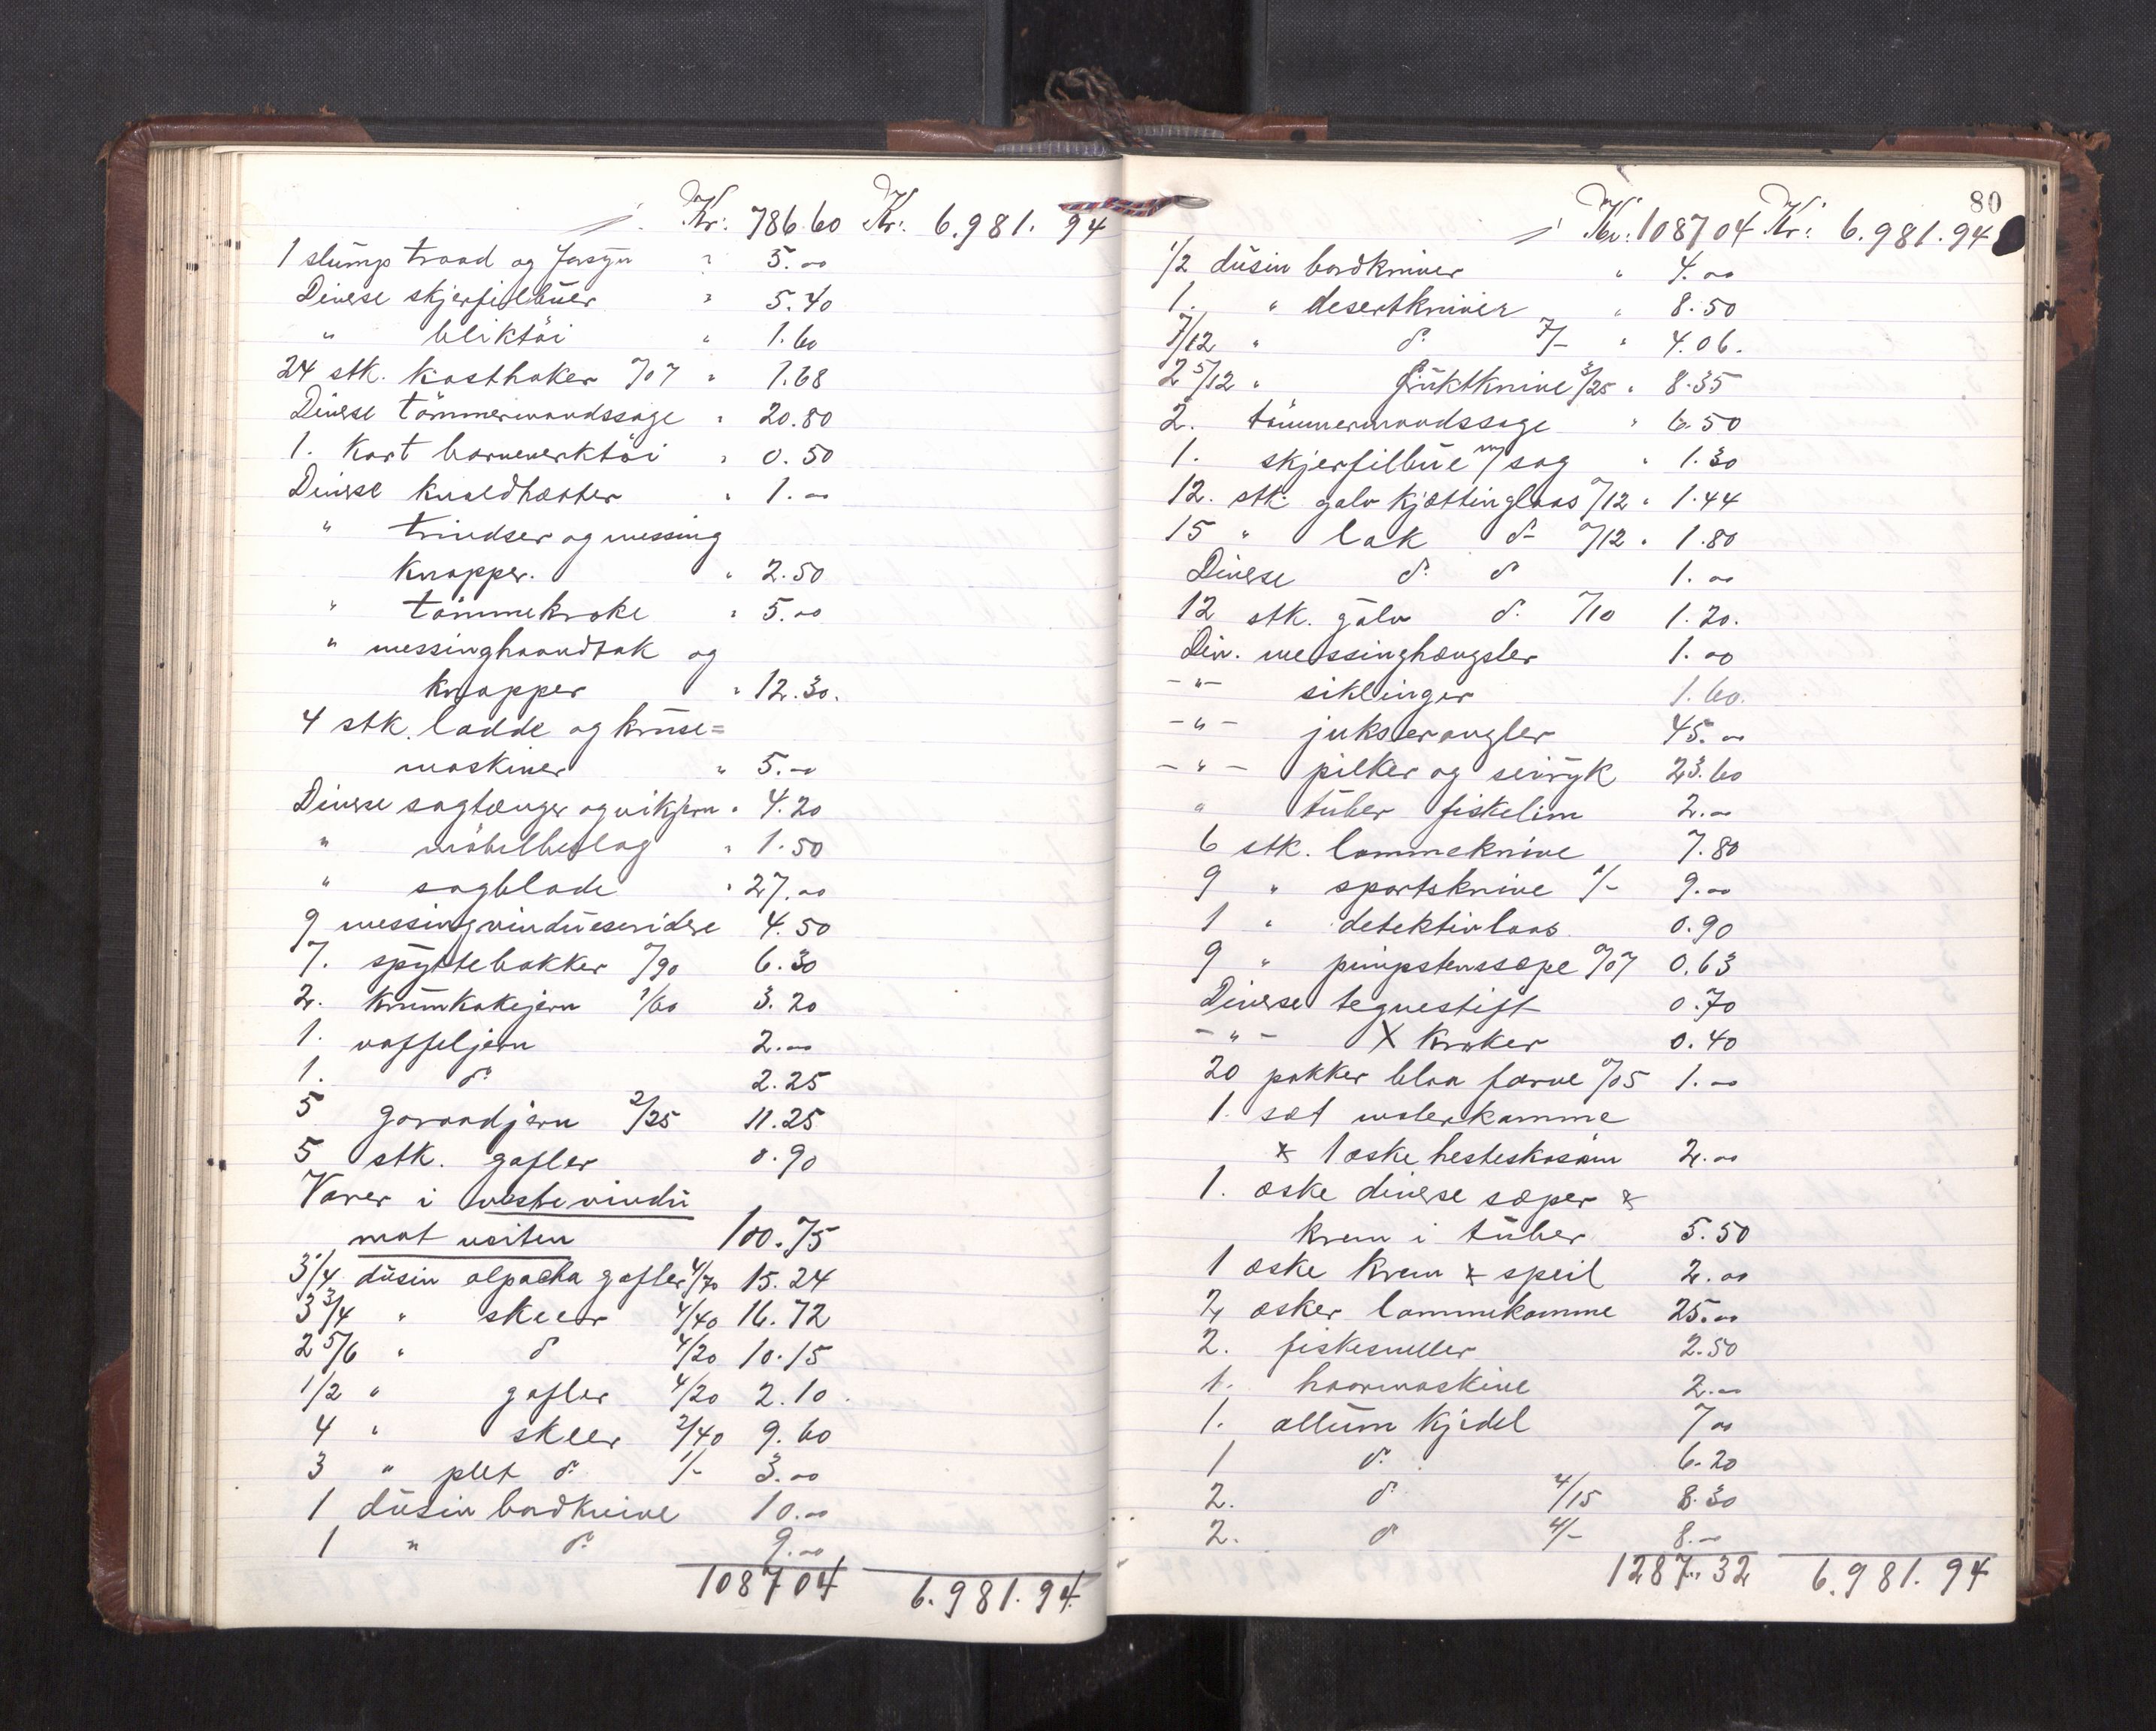 Kr: 786.60 Kr: 6.981.94
1 slump traad og " 5.00
Diverse skjerfilbuer " 5.40
" bliktöi " 1.60
24 stk. kasthaker 0/07 " 1.68
Diverse tömmermandssage " 20.80
1. Kart barneverktöi " 0.50
Diverse " 1.00
" trindser og messing
knapper. " 2.50
" tömmekroke " 5.00
" messinghaandtak og
knapper " 12.30.
4 stk. ladde og kruse=
maskiner " 5.00
Diverse sagtænger og vikjern " 4.20
" möbelbeslag " 1.50
" sagblade " 27.00
9 messingvinduesvidere 4.50
7. spyttebakker 0/90 6.30
2. krumkakejern 1/60 3.20
1. vaffeljern 2.00
1. do 2.25
5 goraadjern 2/25 11.25
5 stk. gafler 0.90
Varer i veste vindu
mot veiten 100.75
3 1/4 dusin alpacka gafler 4/70 15.24
3 3/4 " skeer 4/40 16.72
2 5/6 " do 4/20 10.15
1/2 " gafler 4/20 2.10
4 " skeer 2/40 9.60
3 " plet do 1/- 3.00
1 dusin bordknive 10.00
1 " do 9.00
1087 04 6.981.94
80
Kr: 1087 04 Kr: 6.981.94
1/2 dusin bordkniver " 4.00
1. " desertkniver " 8.50
7/12 " do 7/- " 4.06.
2 5/12 " fruktknive 3/25 " 8.35
2. tömmermandssage " 6.50
1. skjerfilbue m/ sag " 1.30
12. stk. galv kjættinglaas 0/12 " 1.44
15 " lak do 0/12 " 1.80
Diverse do do 1.00
12 stk. galv do 0/10 1.20.
Div. messinghængsler 1.00
-"- siklinger 1.60.
-"- jukserangler 45.00
-"- pilker og seiryk 23.60
" tuber fiskelim 2.00
6 stk. lommeknive 7.80
9 " sportsknive 1/- 9.00
1 " detektivlaas 0.90
9 " pimpstenssæpe 0/07 0.63
Diverse tegnestift 0.70
-"- X kroker 0.40
20 pakker blaa farve 0/05 1.00
1. sæt malerkamme
& 1 æske hesteskosöm 2.00
1. æske diverse sæper &
krem i tuber 5.50
1 æske krem & speil 2.00
2 æsker lommekamme 25.00
2. fiskesneller 2.50
1. haarmaskine 2.00
1. allum kjedel 7 00
1 do 6.20
2. do 4/15 8.30
2. do 4/- 8.00
1287.32 6.981.94